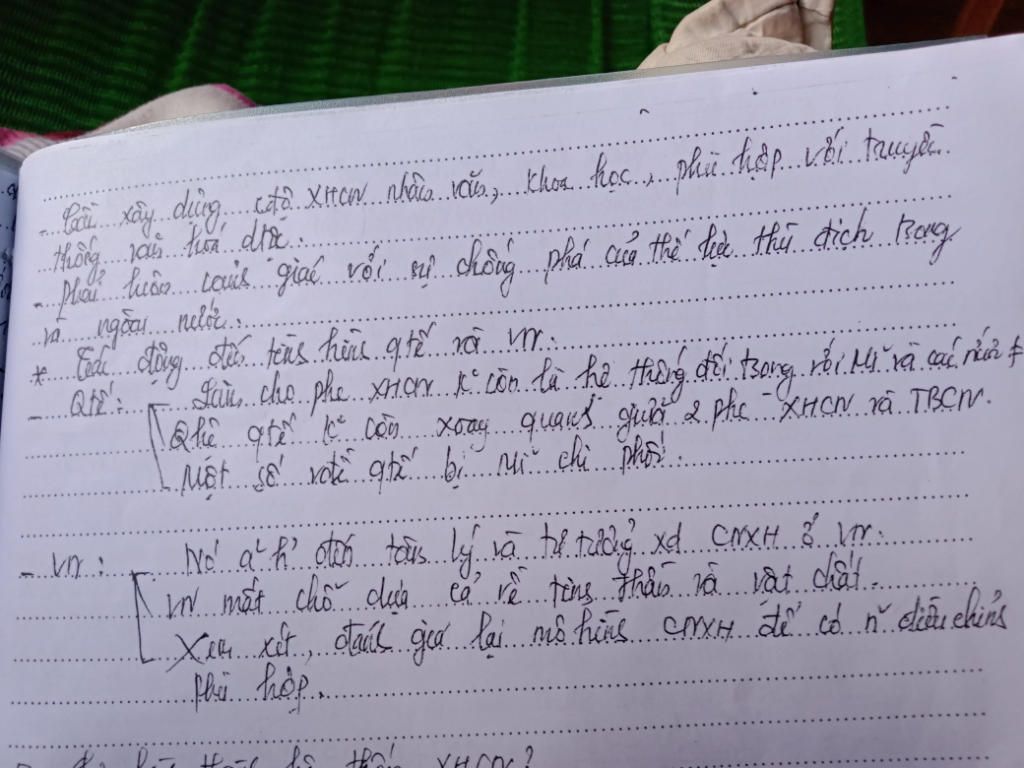 - Cần xây dựng cđộ XHCN nhân văn, khoa học, phù hợp với truyền
thống văn hoá dtộc.
- Phải luôn cảnh giác với sự chống phá của thế lực thù địch trong
và ngoài nước.
* Tác động đến tình hình qtế và VN:
- Qtế: Làm cho phe XHCN k° còn là hệ thống đối trọng với Mĩ và các nước
Qhệ qtế k° còn xoay quanh giữa 2 phe - XHCN và TBCN.
Một số vđề qtế bị Mĩ chi phối.
- VN: Nó a² h' đến tâm lý và tư tưởng xd CNXH ở VN.
VN mất chỗ dựa cả về tinh thần và vật chất.
Xem xét, đánh giá lại mô hình CNXH để có n~ điều chỉnh
phù hợp.
hệ thống XHCN?